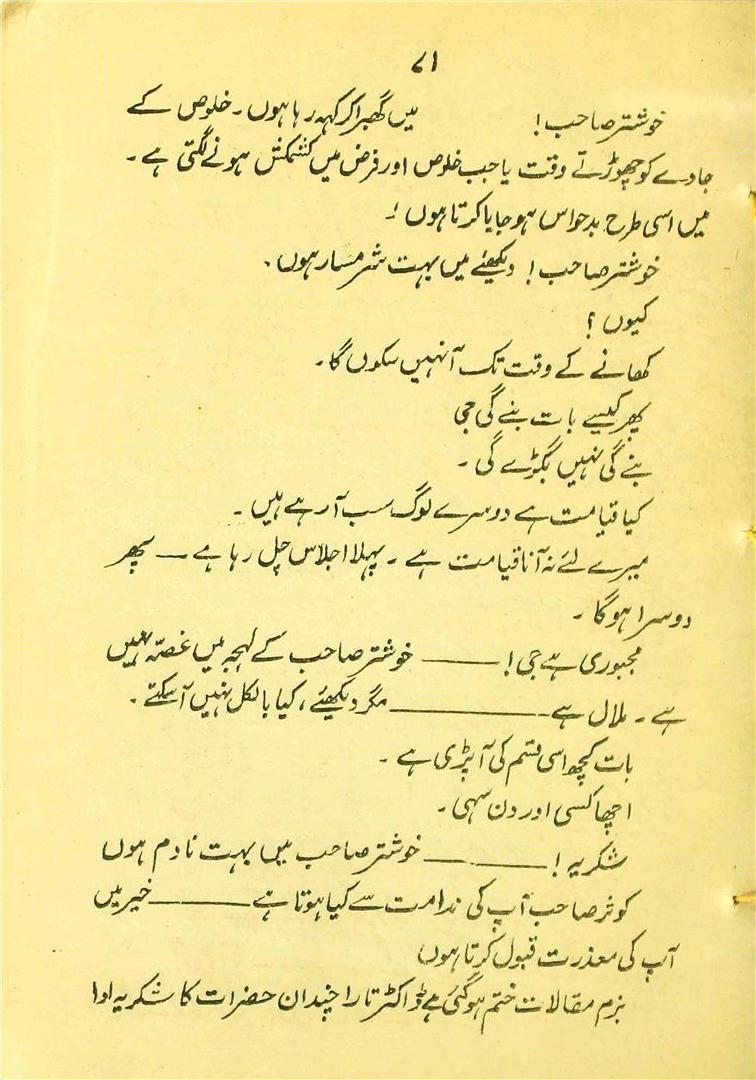 ۷۱
خوشتر صاحب! میں گھبرا کر کہہ رہا ہوں۔ خلوص کے
جادے کو چھوڑتے وقت یا جب خلوص اور فرض میں کشمکش ہونے لگتی ہے۔
میں اسی طرح بدحواس ہو جایا کرتا ہوں!۔
خوشتر صاحب! دیکھئے میں بہت شرمسار ہوں۔
کیوں؟
کھانے کے وقت تک آ نہیں سکوں گا۔
پھر کیسے بات بنے گی جی
بنے گی نہیں بگڑے گی۔
کیا قیامت ہے دوسرے لوگ سب آ رہے ہیں۔
میرے لئے نہ آنا قیامت ہے۔ پہلا اجلاس چل رہا ہے — پھر
دوسرا ہو گا۔
مجبوری ہے جی! ——— خوشتر صاحب کے لہجہ میں غصّہ نہیں
ہے۔ ملال ہے ——————— مگر دیکھئے، کیا بالکل نہیں آ سکتے۔
بات کچھ اسی قسم کی آ پڑی ہے۔
اچھا کسی اور دن سہی۔
شکریہ! ————— خوشتر صاحب میں بہت نادم ہوں
کوثر صاحب آپ کی ندامت سے کیا ہوتا ہے ————— خیر میں
آپ کی معذرت قبول کرتا ہوں
بزم مقالات ختم ہو گئی ہے ڈاکٹر تارا چند ان حضرات کا شکریہ ادا